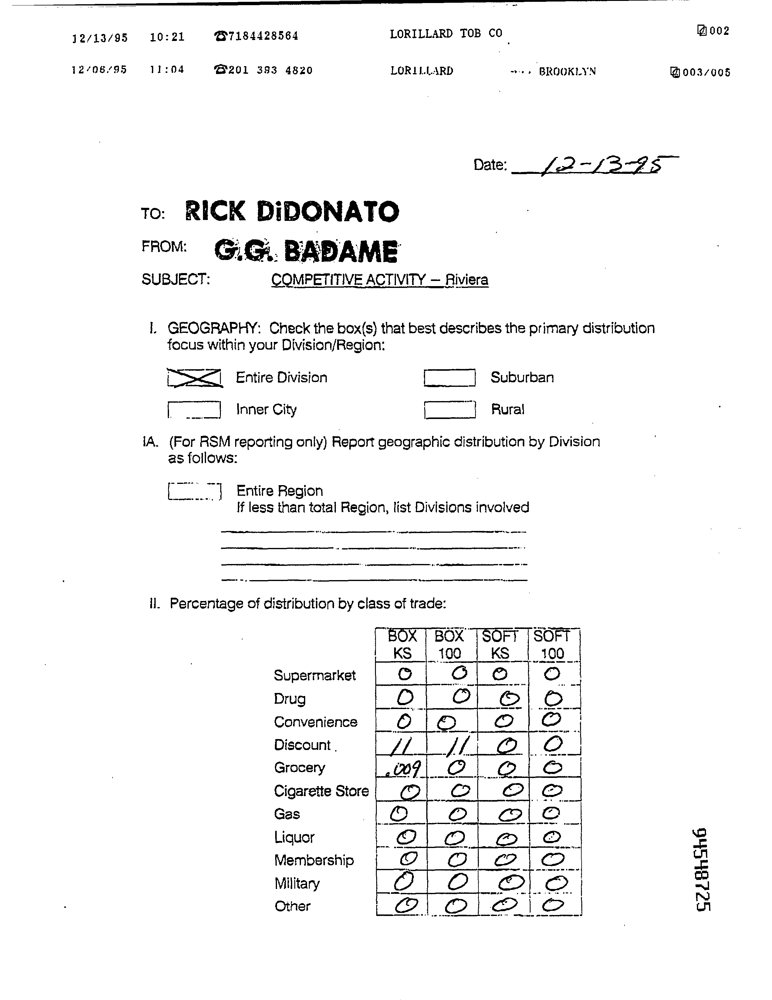 12/13/95 10:21 ☎7184428564 LORILLARD TOB CO 002
12/06/95 11:04 ☎201 393 4820 LORILLARD BROOKLYN 003/005
Date: 12-13-95
TO: RICK DiDONATO
FROM: G.G. BADAME
SUBJECT: COMPETITIVE ACTIVITY – Riviera
I. GEOGRAPHY: Check the box(s) that best describes the primary distribution
focus within your Division/Region:
Entire Division Suburban
Inner City Rural
IA. (For RSM reporting only) Report geographic distribution by Division
as follows:
Entire Region
If less than total Region, list Divisions involved
II. Percentage of distribution by class of trade:
BOX BOX SOFT SOFT
KS 100 KS 100
Supermarket 0 0 0 0
Drug 0 0 0 0
Convenience 0 0 0 0
Discount 11 11 0 0
Grocery .009 0 0 0
Cigarette Store 0 0 0 0
Gas 0 0 0 0
Liquor 0 0 0 0
Membership 0 0 0 0
Military 0 0 0 0
Other 0 0 0 0
94548725